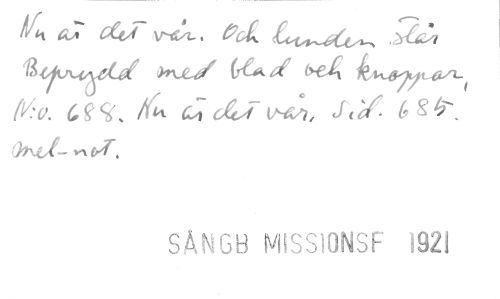 Nu är det vår. Och lunden står
Beprydd med blad och knoppar,
N:o. 688. Nu är det vår. Sid. 685.
mel-not.
SÅNGB MISSIONSF 1921